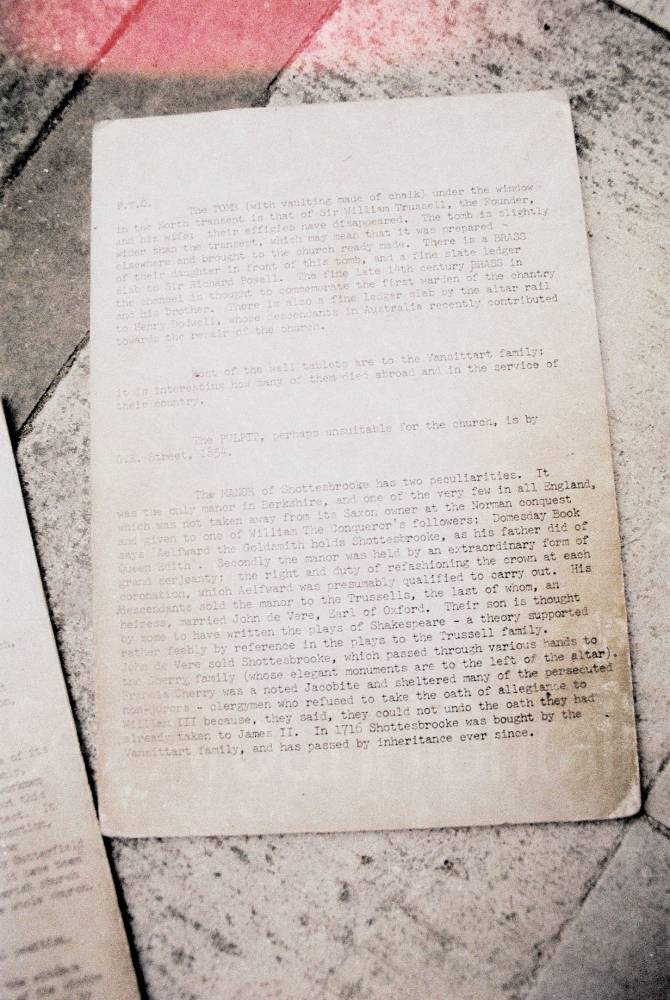 P.T.O.
The TOMB (with vaulting made of chalk) under the window
in the North transept is that of Sir William Trussell, the Founder,
and his wife: their effigies have disappeared. The tomb is slightly
wider than the transept, which may mean that it was prepared
elsewhere and brought to the church ready made. There is a BRASS
of their daughter in front of this tomb, and a fine slate ledger
slab to Sir Richard Powell. The fine late 14th century BRASS in
the chancel is thought to commemorate the first warden of the chantry
and his brother. There is also a fine ledger slab by the altar rail
to Henry Dodwell, whose descendants in Australia recently contributed
towards the repair of the church.
Most of the wall tablets are to the Vansittart family;
it is interesting how many of them died abroad and in the service of
their country.
The PULPIT, perhaps unsuitable for the church, is by
G.E. Street, 1854.
The MANOR of Shottesbrooke has two peculiarities. It
was the only manor in Berkshire, and one of the very few in all England,
which was not taken away from its Saxon owner at the Norman conquest
and given to one of William The Conqueror's followers: Domesday Book
says 'Aelfward the Goldsmith holds Shottesbrooke, as his father did of
Queen Edith'. Secondly the manor was held by an extraordinary form of
grand serjeanty: the right and duty of refashioning the crown at each
coronation, which Aelfward was presumably qualified to carry out. His
descendants sold the manor to the Trussells, the last of whom, an
heiress, married John de Vere, Earl of Oxford. Their son is thought
by some to have written the plays of Shakespeare - a theory supported
rather feebly by reference in the plays to the Trussell family.
John de Vere sold Shottesbrooke, which passed through various hands to
the Cherry family (whose elegant monuments are to the left of the altar).
Cherry was a noted Jacobite and sheltered many of the persecuted
Non-Jurors - clergymen who refused to take the oath of allegiance to
William III because, they said, they could not undo the oath they had
already taken to James II. In 1716 Shottesbrooke was bought by the
Vansittart family, and has passed by inheritance ever since.
of its
Butterfield